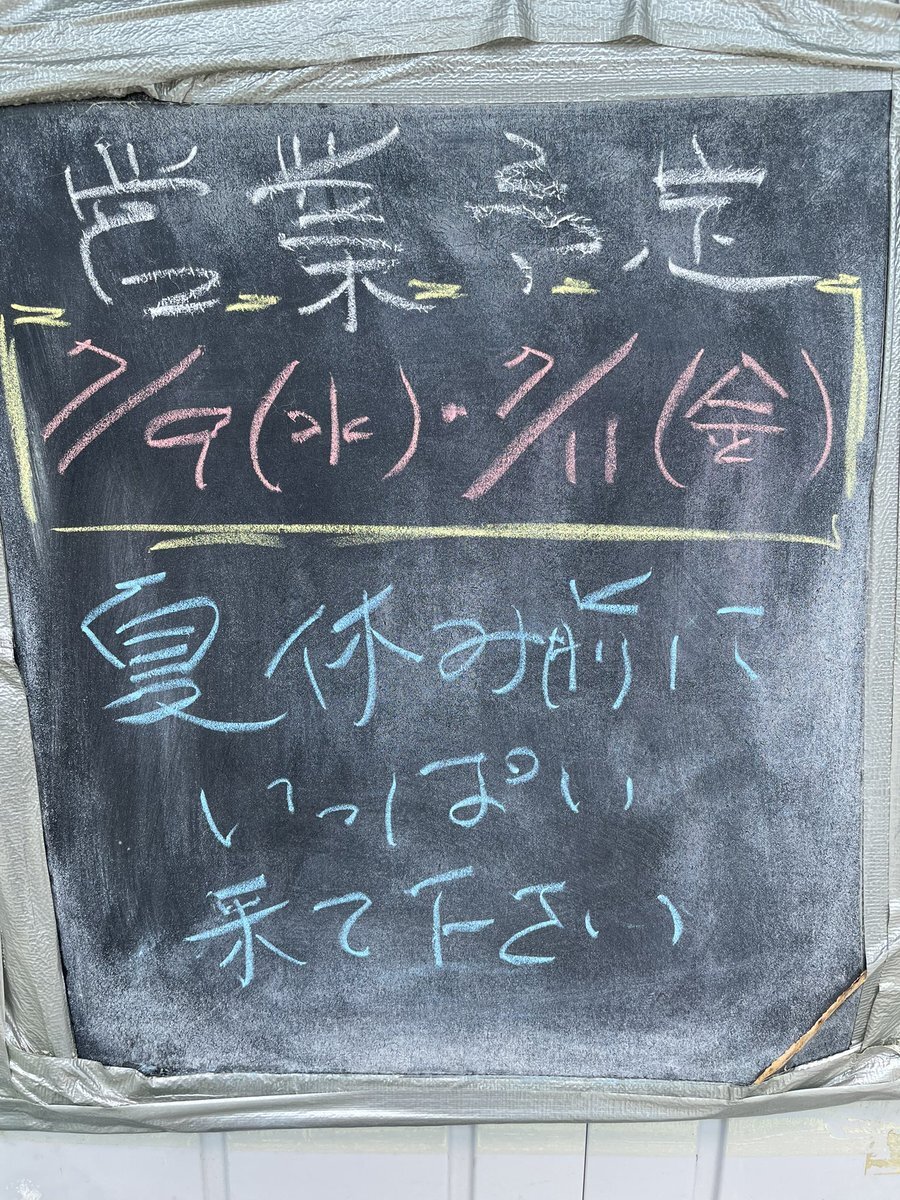 営業予定
7/9(水)・7/11(金)
夏休み前に
いっぱい
来て下さい